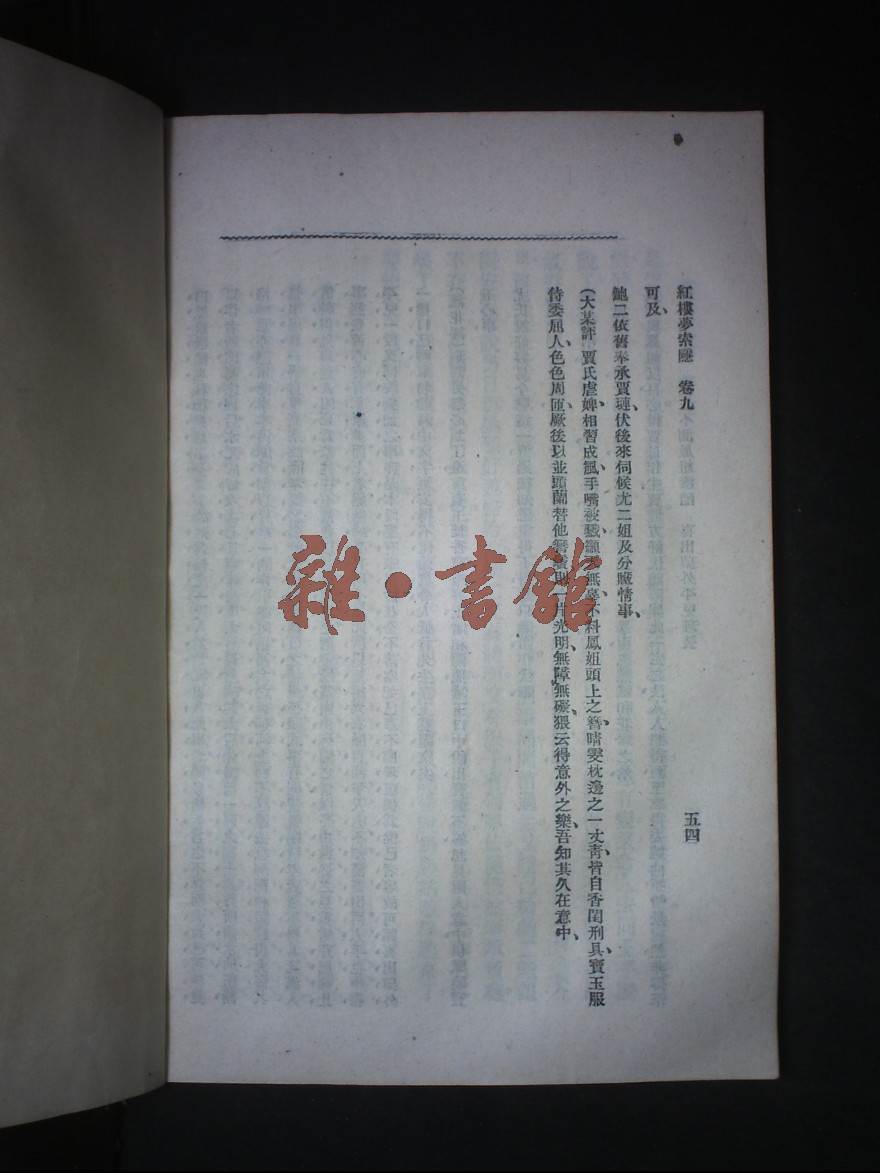 紅樓夢索隱 卷九 五四
可及、
鮑二依舊奉承賈璉、伏後來伺候尤二姐及分贓情事、
(大某評)賈氏虐婢、相習成風、手嘴被戳、無辜、不料鳳姐頭上之簪、晴雯枕邊之一丈青、皆自香閨刑具、寶玉服
侍委屈人、色色周匝、厥後以並頭蘭替他簪、片光明、無障無礙、猥云得意外之樂、吾知其久在意中、
雜·書館